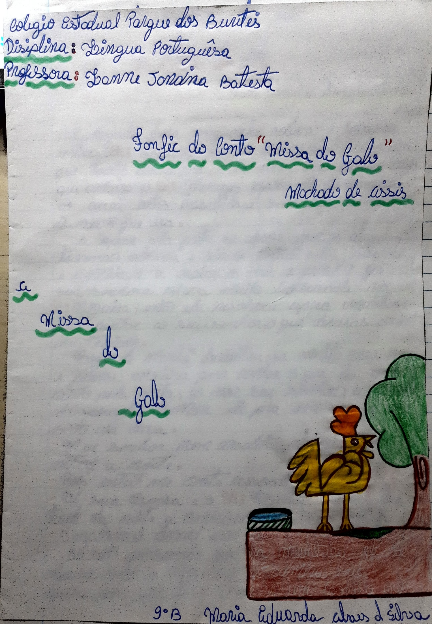 Colégio Estadual Parque dos Buritis
Disciplina: Língua Portuguêsa
Professora: Lanne Jonaína Batista
Fanfic do Conto "Missa do Galo"
Machado de Assis
a
Missa
do
Galo
9º B Maria Eduarda d Silva